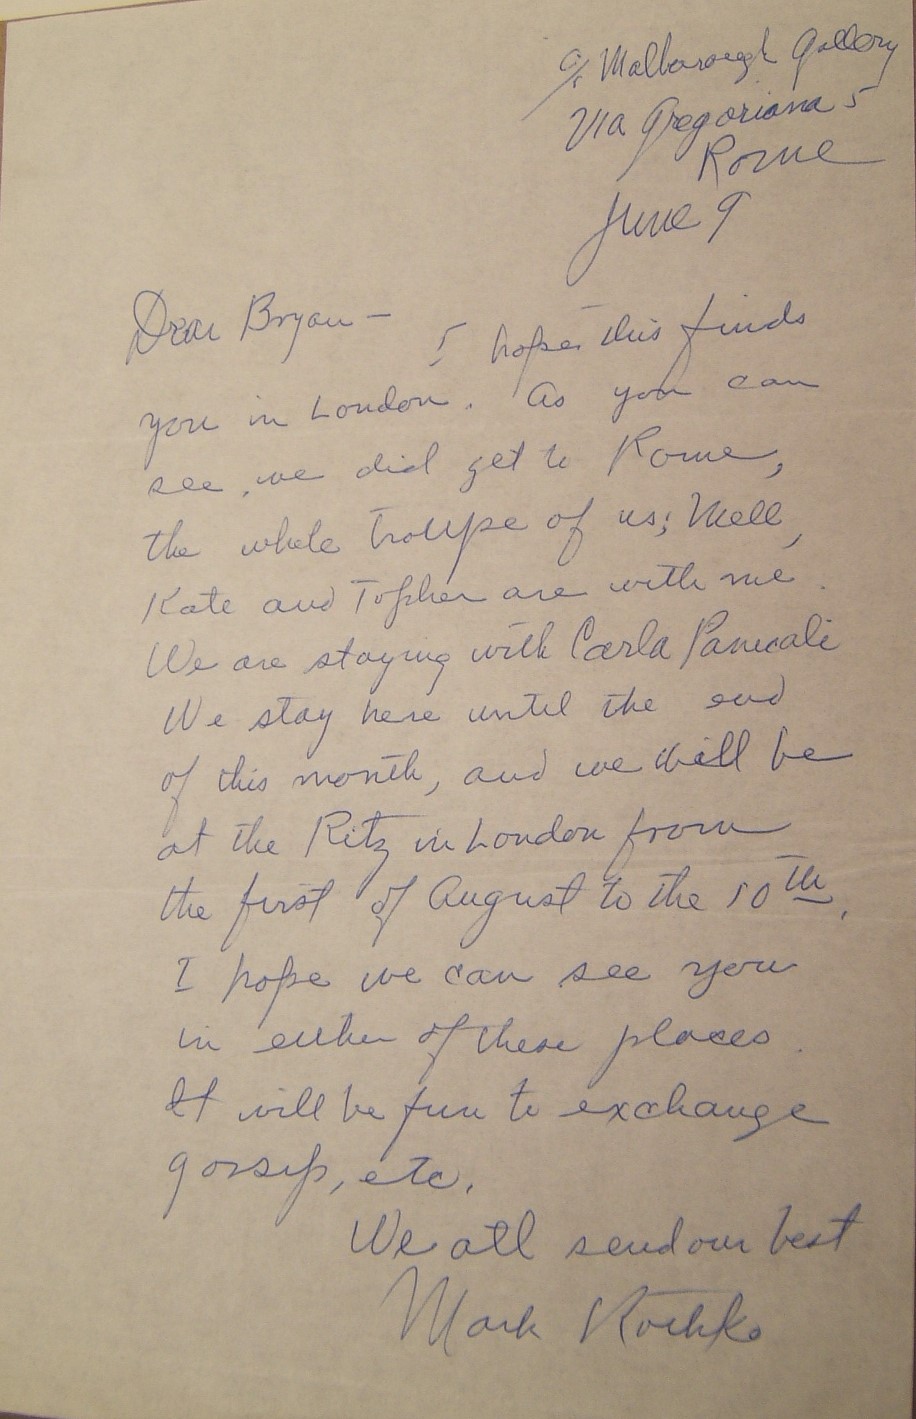 c/o Malborough Gallery
Via Gregoriana 5
Rome
June 9
Dear Bryan –
I hope this finds
you in London. As you can
see, we did get to Rome,
the whole troupe of us; Mell,
Kate and Topher are with me.
We are staying with Carla Panicali
We stay here until the end
of this month, and we will be
at the Ritz in London from
the first of August to the 10th.
I hope we can see you
in either of these places.
It will be fun to exchange
gossip, etc.
We all send our best
Mark Rothko